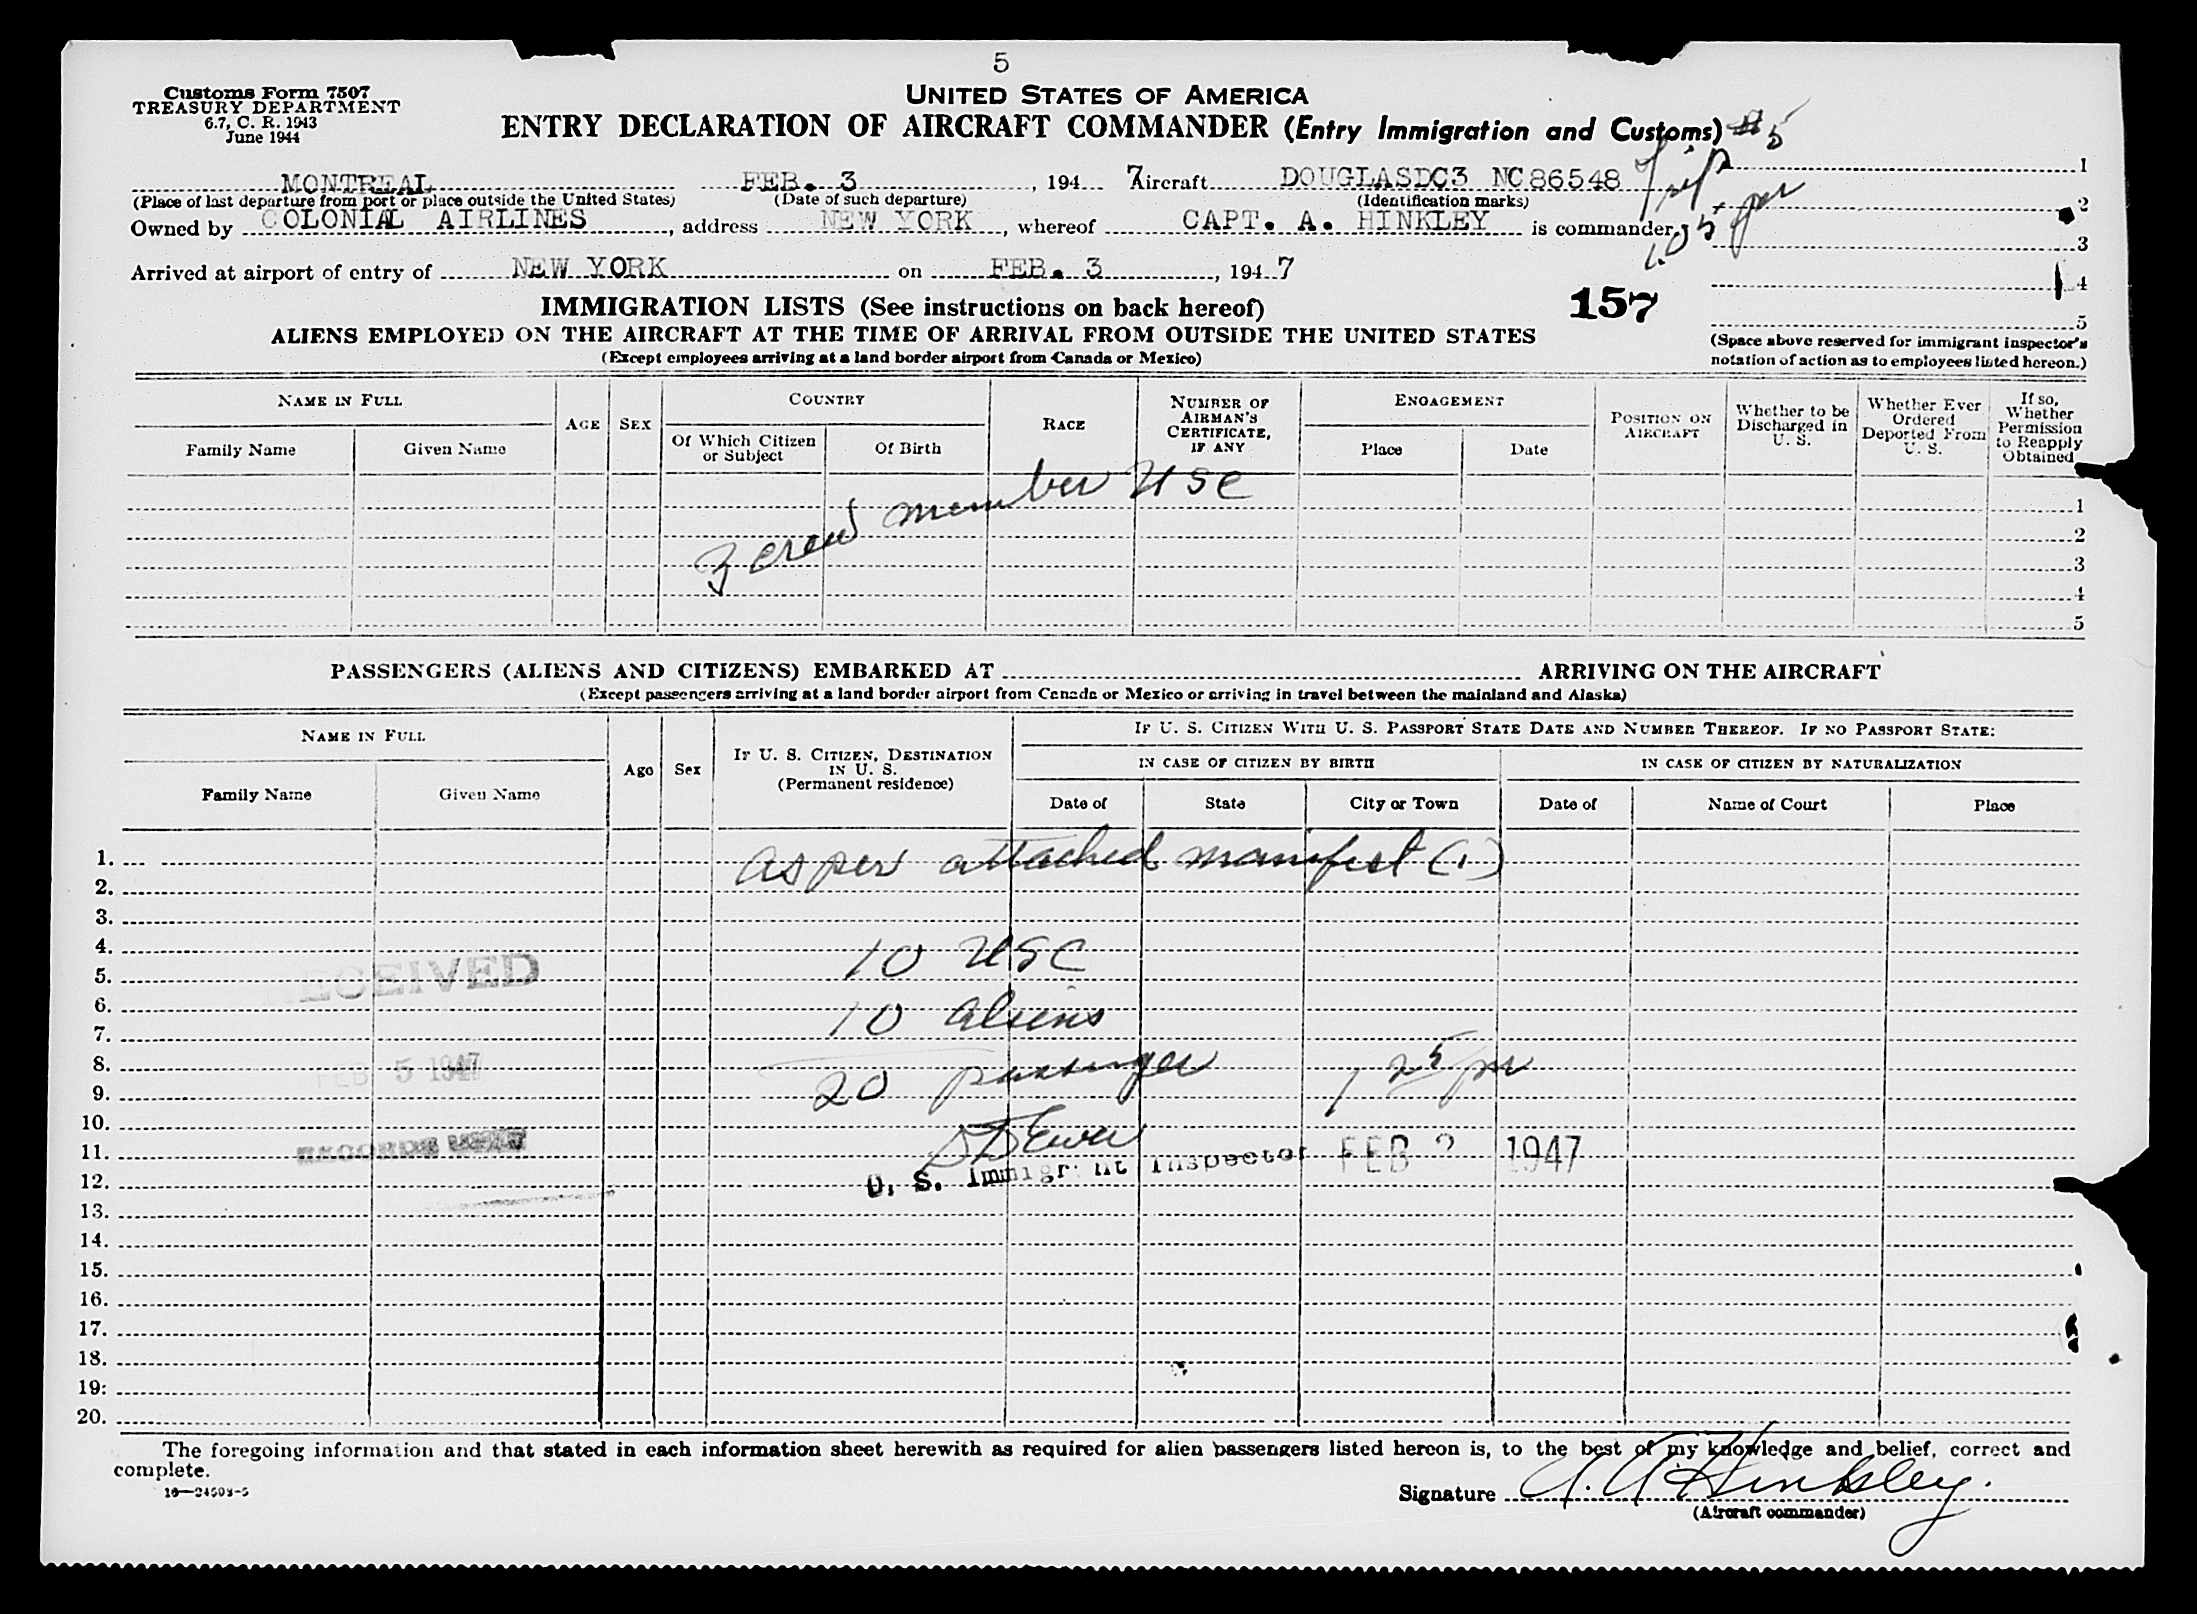 5
Customs Form 7507
TREASURY DEPARTMENT
6.7, C. R. 1943
June 1944
UNITED STATES OF AMERICA
ENTRY DECLARATION OF AIRCRAFT COMMANDER (Entry Immigration and Customs) #5
Trip
1.05 pm
MONTREAL FEB. 3, 1947 Aircraft DOUGLASDC3 NC86548
(Place of last departure from port or place outside the United States) (Date of such departure) (Identification marks)
Owned by COLONIAL AIRLINES, address NEW YORK, whereof CAPT. A. HINKLEY is commander,
Arrived at airport of entry of NEW YORK on FEB. 3, 1947
1
2
3
4
5
IMMIGRATION LISTS (See instructions on back hereof) 157
ALIENS EMPLOYED ON THE AIRCRAFT AT THE TIME OF ARRIVAL FROM OUTSIDE THE UNITED STATES
(Except employees arriving at a land border airport from Canada or Mexico)
(Space above reserved for immigrant inspector's
notation of action as to employees listed hereon.)
NAME IN FULL
Family Name Given Name
AGE SEX
COUNTRY
Of Which Citizen or Subject Of Birth
RACE
NUMBER OF AIRMAN'S CERTIFICATE, IF ANY
ENGAGEMENT
Place Date
POSITION ON AIRCRAFT
Whether to be Discharged in U. S.
Whether Ever Ordered Deported From U. S.
If so, Whether Permission to Reapply Obtained
3 crew member USC
1
2
3
4
5
PASSENGERS (ALIENS AND CITIZENS) EMBARKED AT ARRIVING ON THE AIRCRAFT
(Except passengers arriving at a land border airport from Canada or Mexico or arriving in travel between the mainland and Alaska)
NAME IN FULL
Family Name Given Name
Age Sex
IF U. S. CITIZEN, DESTINATION IN U. S.
(Permanent residence)
IF U. S. CITIZEN WITH U. S. PASSPORT STATE DATE AND NUMBER THEREOF. IF NO PASSPORT STATE:
IN CASE OF CITIZEN BY BIRTH IN CASE OF CITIZEN BY NATURALIZATION
Date of State City or Town Date of Name of Court Place
1. as per attached manifest (1)
2.
3.
4. 10 USC
5. RECEIVED
6. 10 aliens
7.
8. FEB 5 1947
9. 20 passenger 1 25 pm
10.
11. RECORDS FEB 1947
12. U. S. Immigrant Inspector
13.
14.
15.
16.
17.
18.
19.
20.
The foregoing information and that stated in each information sheet herewith as required for alien passengers listed hereon is, to the best of my knowledge and belief, correct and
complete.
16—24503-5
Signature A. A. Hinkley.
(Aircraft commander)